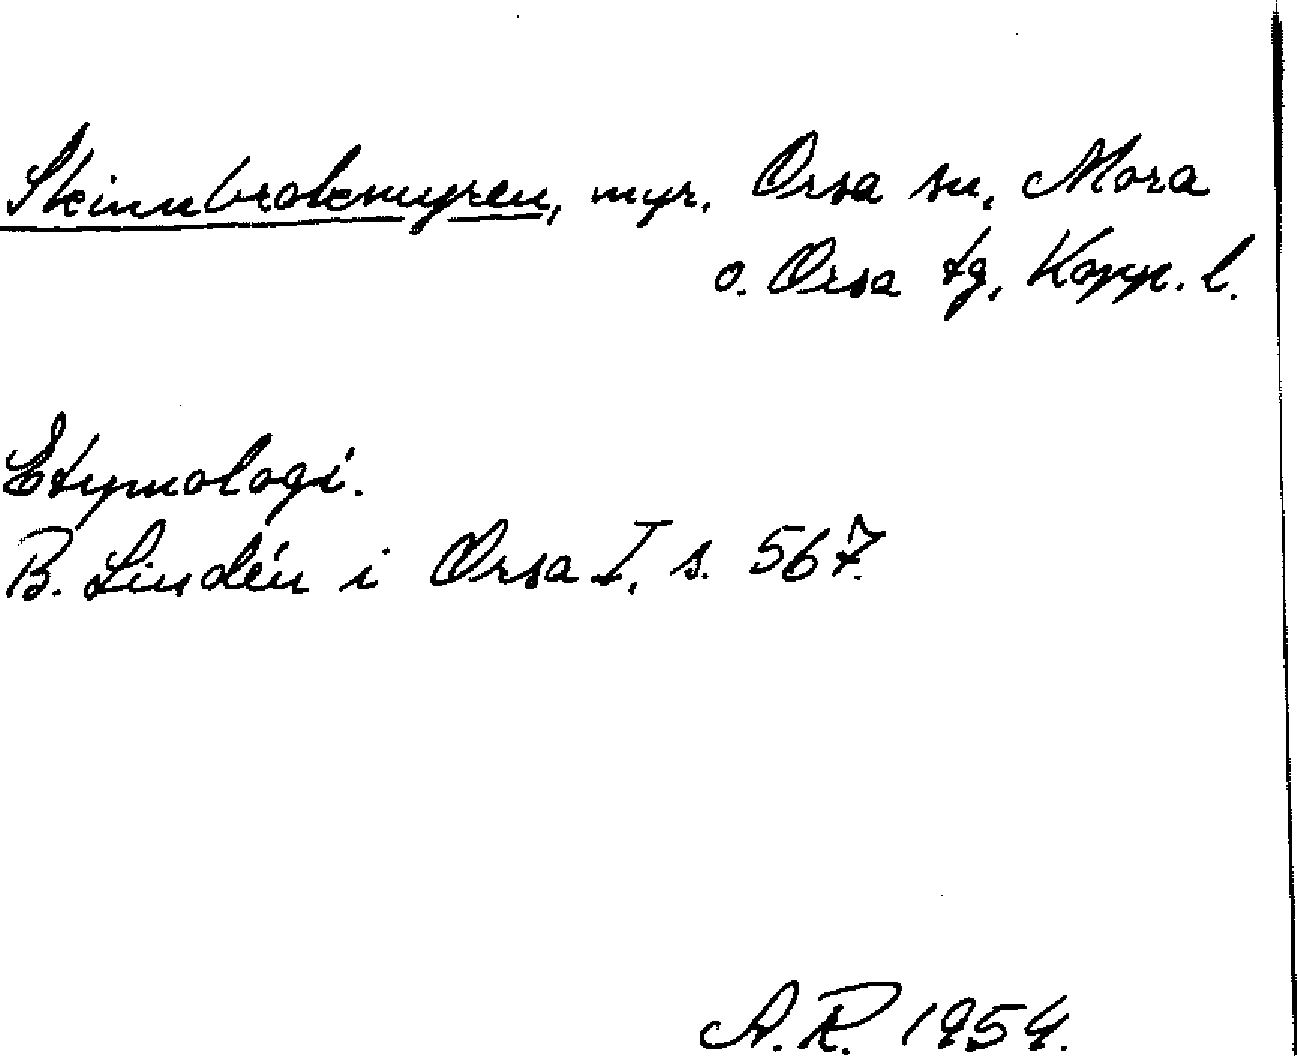 Skinnbrokmyren, myr, Orsa sn, Mora
o. Orsa tg, Kopp. l.
Etymologi.
B. Lindén i Orsa I, s. 567.
A. R. 1954.